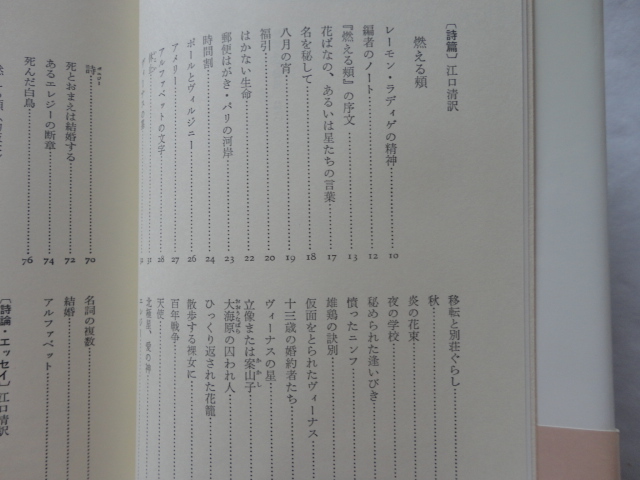 〔詩篇〕江口清訳
燃える頬
レーモン・ラディゲの精神 10
編者のノート 12
『燃える頬』の序文 13
花ばなの、あるいは星たちの言葉 17
名を秘して 18
八月の宵 19
福引 20
はかない生命 22
郵便はがき・パリの河岸 23
時間割 24
ポールとヴィルジニー 26
アメリー 27
アルファベットの文字 28
移転と別荘ぐらし
秋
炎の花束
夜の学校
秘められた逢いびき
憤ったニンフ
雄鶏の訣別
仮面をとられたヴィーナス
十三歳の婚約者たち
ヴィーナスの星
立像または案山子
大海原の囚われ人
ひっくり返された花籠
散歩する裸女に
百年戦争
天使
北極星、愛の神
詩 70
死とおまえは結婚する 72
あるエレジーの断章 74
死んだ白鳥 76
名詞の複数
結婚
アルファベット
〔詩論・エッセイ〕江口清訳